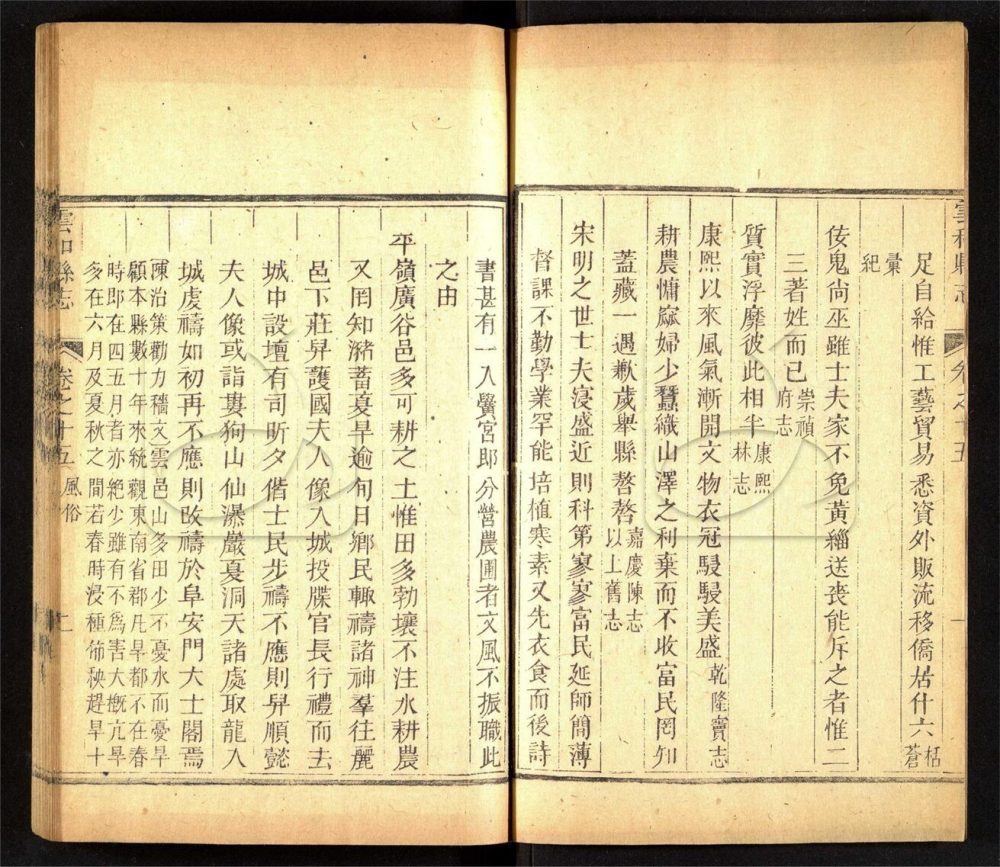 足自給惟工藝貿易悉資外販流移僑居什六括蒼
彙紀
佞鬼尚巫雖士夫家不免黃緇送喪能斥之者惟二
三著姓而已崇禎府志
質實浮靡彼此相半康熙林志
康熙以來風氣漸開文物衣冠駸駸美盛乾隆竇志
耕農慵窳婦少蠶織山澤之利棄而不收富民罔知
蓋藏一遇歉歲舉縣嗸嗸嘉慶陳志以上舊志
宋明之世士夫寖盛近則科第寥寥富民延師簡薄
督課不勤學業罕能培植寒素又先衣食而後詩
書甚有一入黌宮郎分營農圃者文風不振職此
之由
平嶺廣谷邑多可耕之土惟田多勃壤不注水耕農
又罔知瀦蓄夏旱逾旬日鄉民輒禱諸神羣往麗
邑下莊昇護國夫人像入城投牒官長行禮而去
城中設壇有司昕夕偕士民步禱不應則昇順懿
夫人像或詣婁狗山仙瀑巖夏洞天諸處取龍入
城虔禱如初再不應則改禱於阜安門大士閣焉
陳治策勸力穡文雲邑山多田少不憂水而憂旱
顧本縣數十年來統觀東南省郡凡旱都不在春
時即在四五月者亦絕少雖有不爲害大槪亢旱
多在六月及夏秋之間若春時浸種佈秧趕早十
雲和縣志
卷之十五
風俗
二